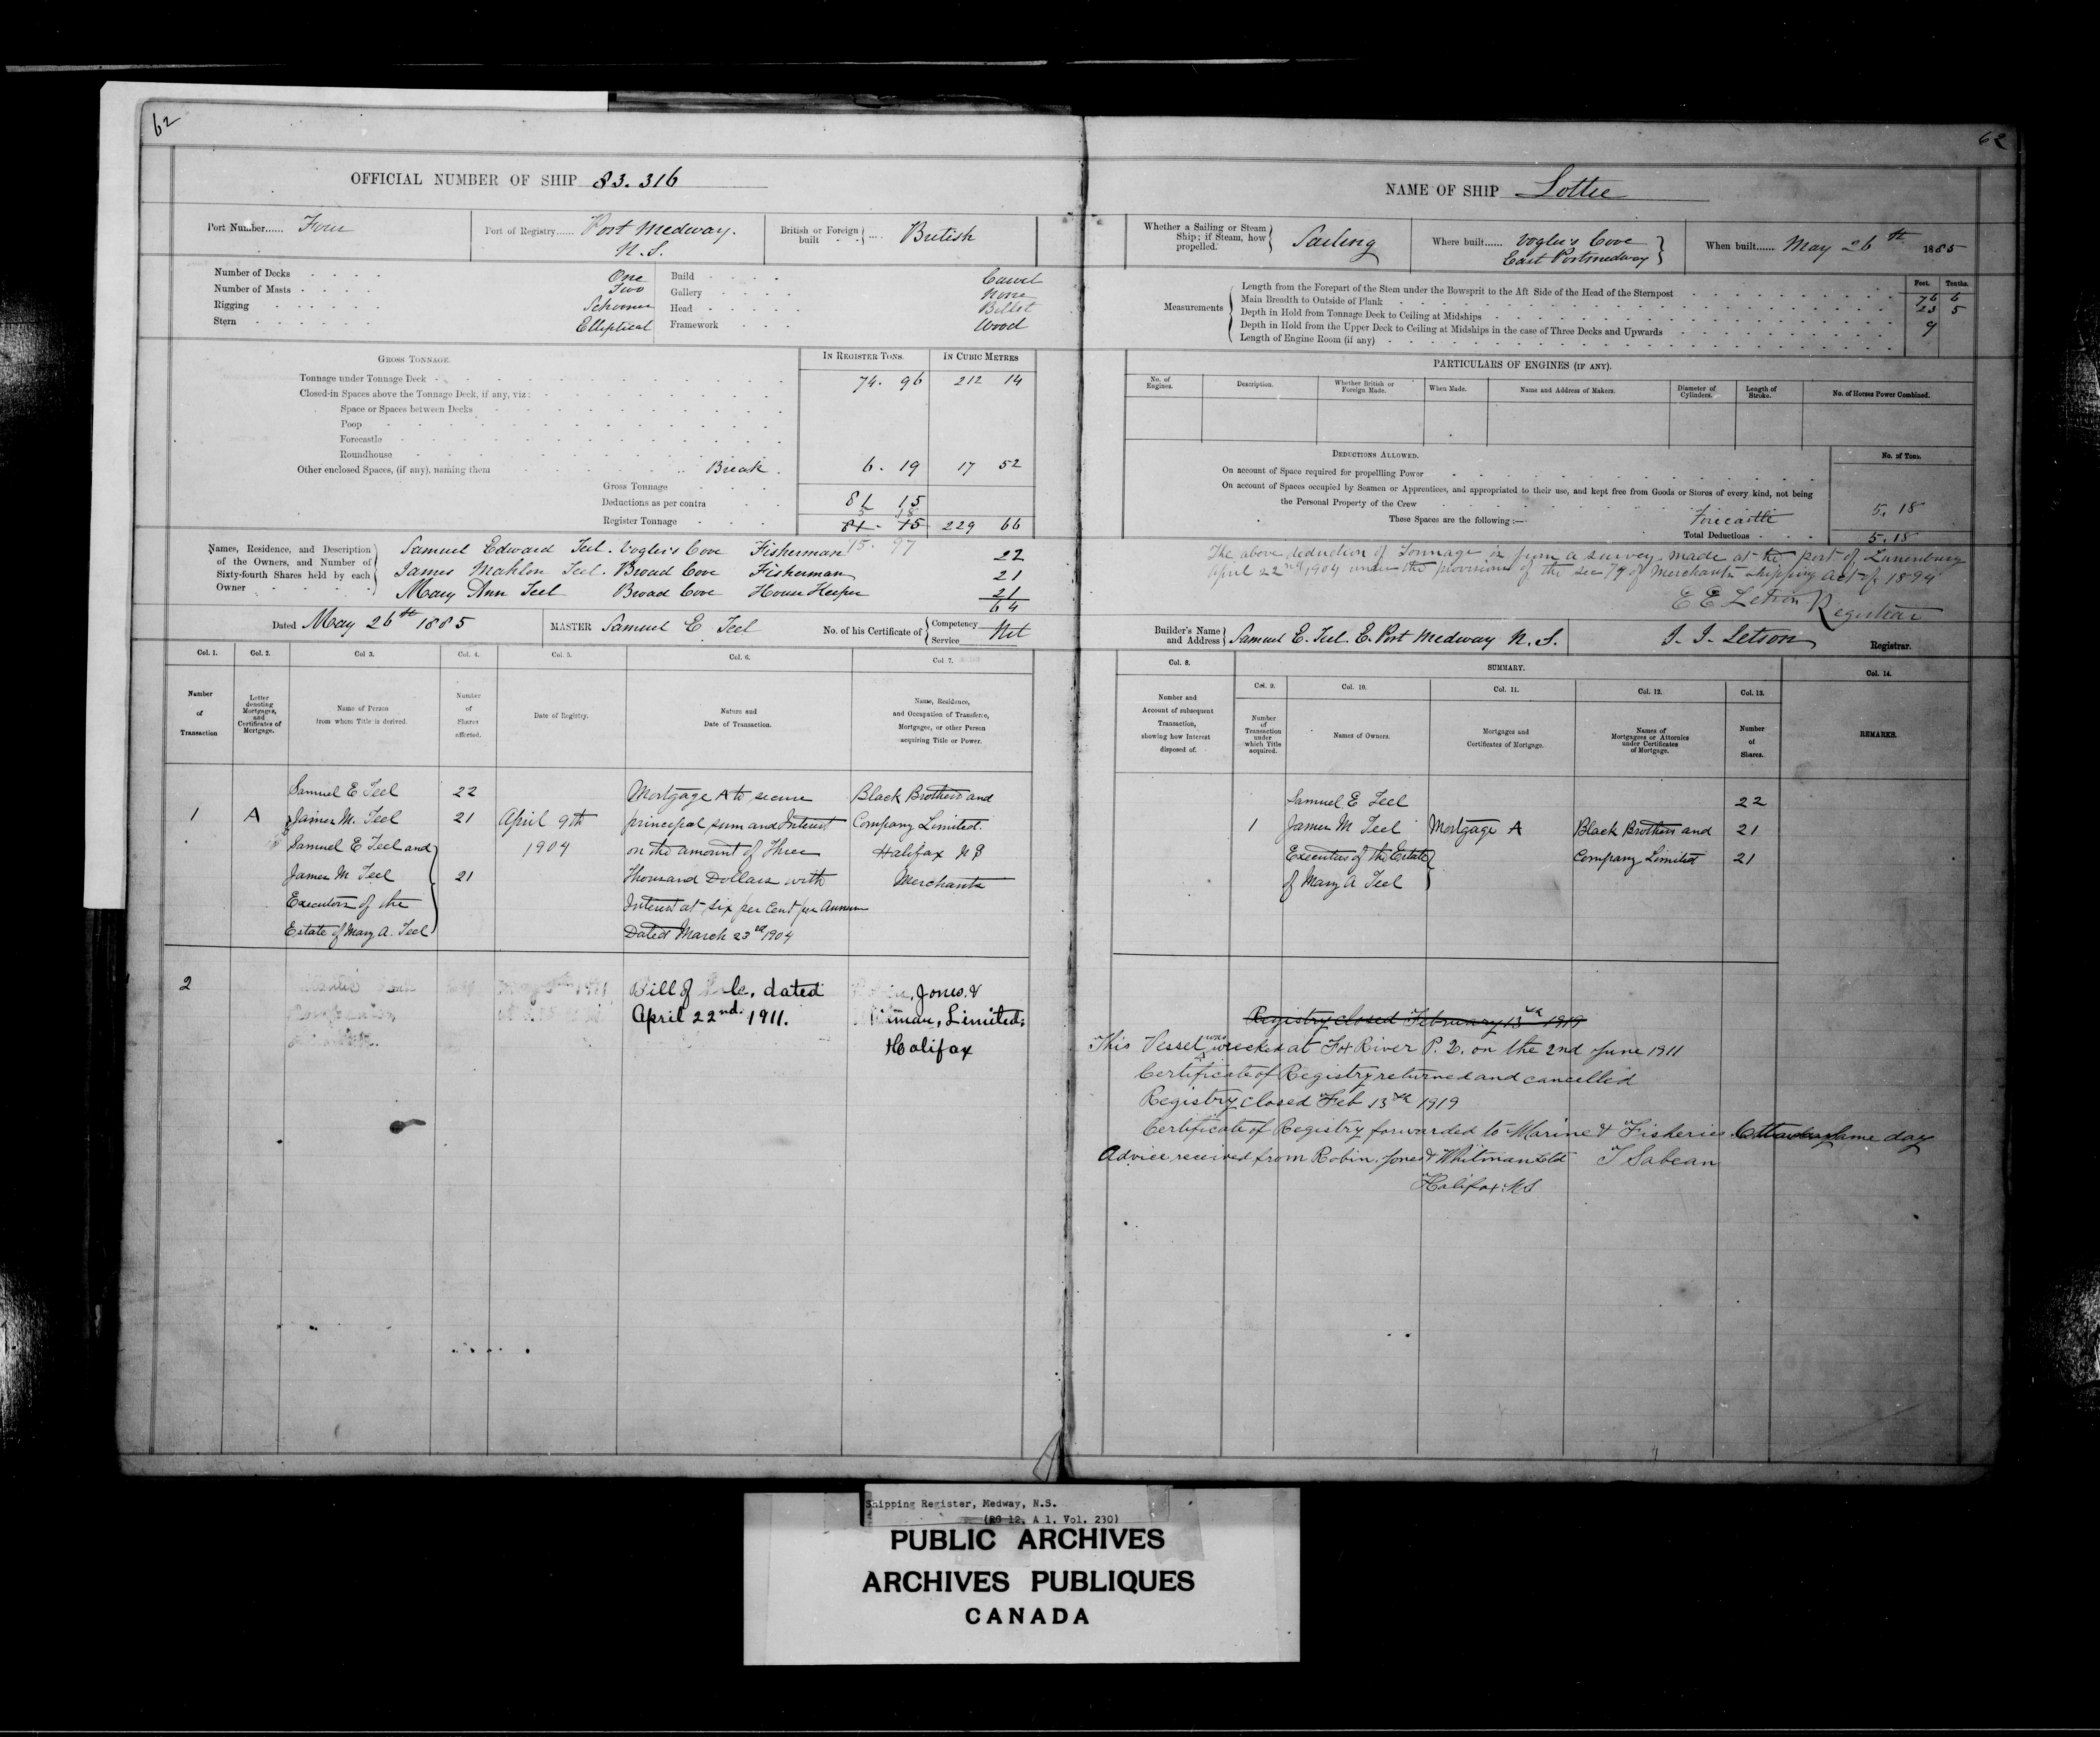 62
OFFICIAL NUMBER OF SHIP 83.316
Port Number...... Four
Port of Registry...... Port Medway. N.S.
British or Foreign built British
Number of Decks One
Number of Masts Two
Rigging Schooner
Stern Elliptical
Build Carvel
Gallery None
Head Billet
Framework Wood
GROSS TONNAGE.
IN REGISTER TONS. IN CUBIC METRES
Tonnage under Tonnage Deck 74. 96 212 14
Closed-in Spaces above the Tonnage Deck, if any, viz:
Space or Spaces between Decks
Poop
Forecastle
Roundhouse
Other enclosed Spaces, (if any), naming them Break. 6. 19 17 52
Gross Tonnage 81 15
Deductions as per contra 5 18
Register Tonnage 81. 15 229 66
75. 97
Names, Residence, and Description of the Owners, and Number of Sixty-fourth Shares held by each Owner
Samuel Edward Teel. Vogler's Cove Fisherman 22
James Mahlon Teel. Broad Cove Fisherman 21
Mary Ann Teel Broad Cove House Keeper 21
64
Dated May 26th 1885 MASTER Samuel E. Teel No. of his Certificate of Competency Service Nil
Col. 1. Col. 2. Col. 3. Col. 4. Col. 5. Col. 6. Col. 7.
Number of Transaction
Letter denoting Mortgages, and Certificates of Mortgage.
Name of Person from whom Title is derived.
Number of Shares affected.
Date of Registry.
Nature and Date of Transaction.
Name, Residence, and Occupation of Transferee, Mortgagee, or other Person acquiring Title or Power.
Samuel E Teel 22 Mortgage A to secure Black Brothers and
1 A James M. Teel 21 April 9th principal sum and Interest Company Limited.
Samuel E Teel and 1904 on the amount of Three Halifax N S
James M Teel 21 Thousand Dollars with Merchants
Executors of the Interest at six per Cent per Annum
Estate of Mary A. Teel Dated March 23rd 1904
2 Bill of dated Jones &
April 22nd. 1911. Limited,
Halifax
62
NAME OF SHIP Lottie
Whether a Sailing or Steam Ship; if Steam, how propelled. Sailing
Where built...... Vogler's Cove East Portmedway
When built...... May 26th 1885
Measurements
Feet. Tenths.
Length from the Forepart of the Stem under the Bowsprit to the Aft Side of the Head of the Sternpost 76 6
Main Breadth to Outside of Plank 23 5
Depth in Hold from Tonnage Deck to Ceiling at Midships 9
Depth in Hold from the Upper Deck to Ceiling at Midships in the case of Three Decks and Upwards
Length of Engine Room (if any)
PARTICULARS OF ENGINES (IF ANY).
No. of Engines. Description. Whether British or Foreign Made. When Made. Name and Address of Makers. Diameter of Cylinders. Length of Stroke. No. of Horses Power Combined.
DEDUCTIONS ALLOWED. No. of Tons.
On account of Space required for propelling Power
On account of Spaces occupied by Seamen or Apprentices, and appropriated to their use, and kept free from Goods or Stores of every kind, not being
the Personal Property of the Crew 5. 18
These Spaces are the following:— Forecastle
Total Deductions 5.18
The above deduction of Tonnage is from a survey made at the port of Lunenburg
April 22nd 1904 under the provisions of the sec 79 of Merchants Shipping Act of 1894
E E Letson Registrar
Builder's Name and Address Samuel E. Teel. E. Port Medway N.S. J. J. Letson Registrar.
Col. 8. SUMMARY. Col. 14.
Col. 9. Col. 10. Col. 11. Col. 12. Col. 13.
Number and Account of subsequent Transaction, showing how Interest disposed of.
Number of Transaction under which Title acquired.
Names of Owners.
Mortgages and Certificates of Mortgage.
Names of Mortgagees or Attornies under Certificates of Mortgage.
Number of Shares.
REMARKS.
Samuel E Teel 22
1 James M Teel Mortgage A Black Brothers and 21
Executors of the Estate Company Limited 21
of Mary A Teel
Registry closed February 13th 1919
This Vessel was wrecked at Fox River P. Q. on the 2nd June 1911
Certificate of Registry returned and cancelled
Registry closed Feb 13th 1919
Certificate of Registry forwarded to Marine & Fisheries Ottawa same day
Advice received from Robin, Jones & Whitman Ltd T Sabean
Halifax N S
Shipping Register, Medway, N.S.
(RG 12, A 1. Vol. 230)
PUBLIC ARCHIVES
ARCHIVES PUBLIQUES
CANADA